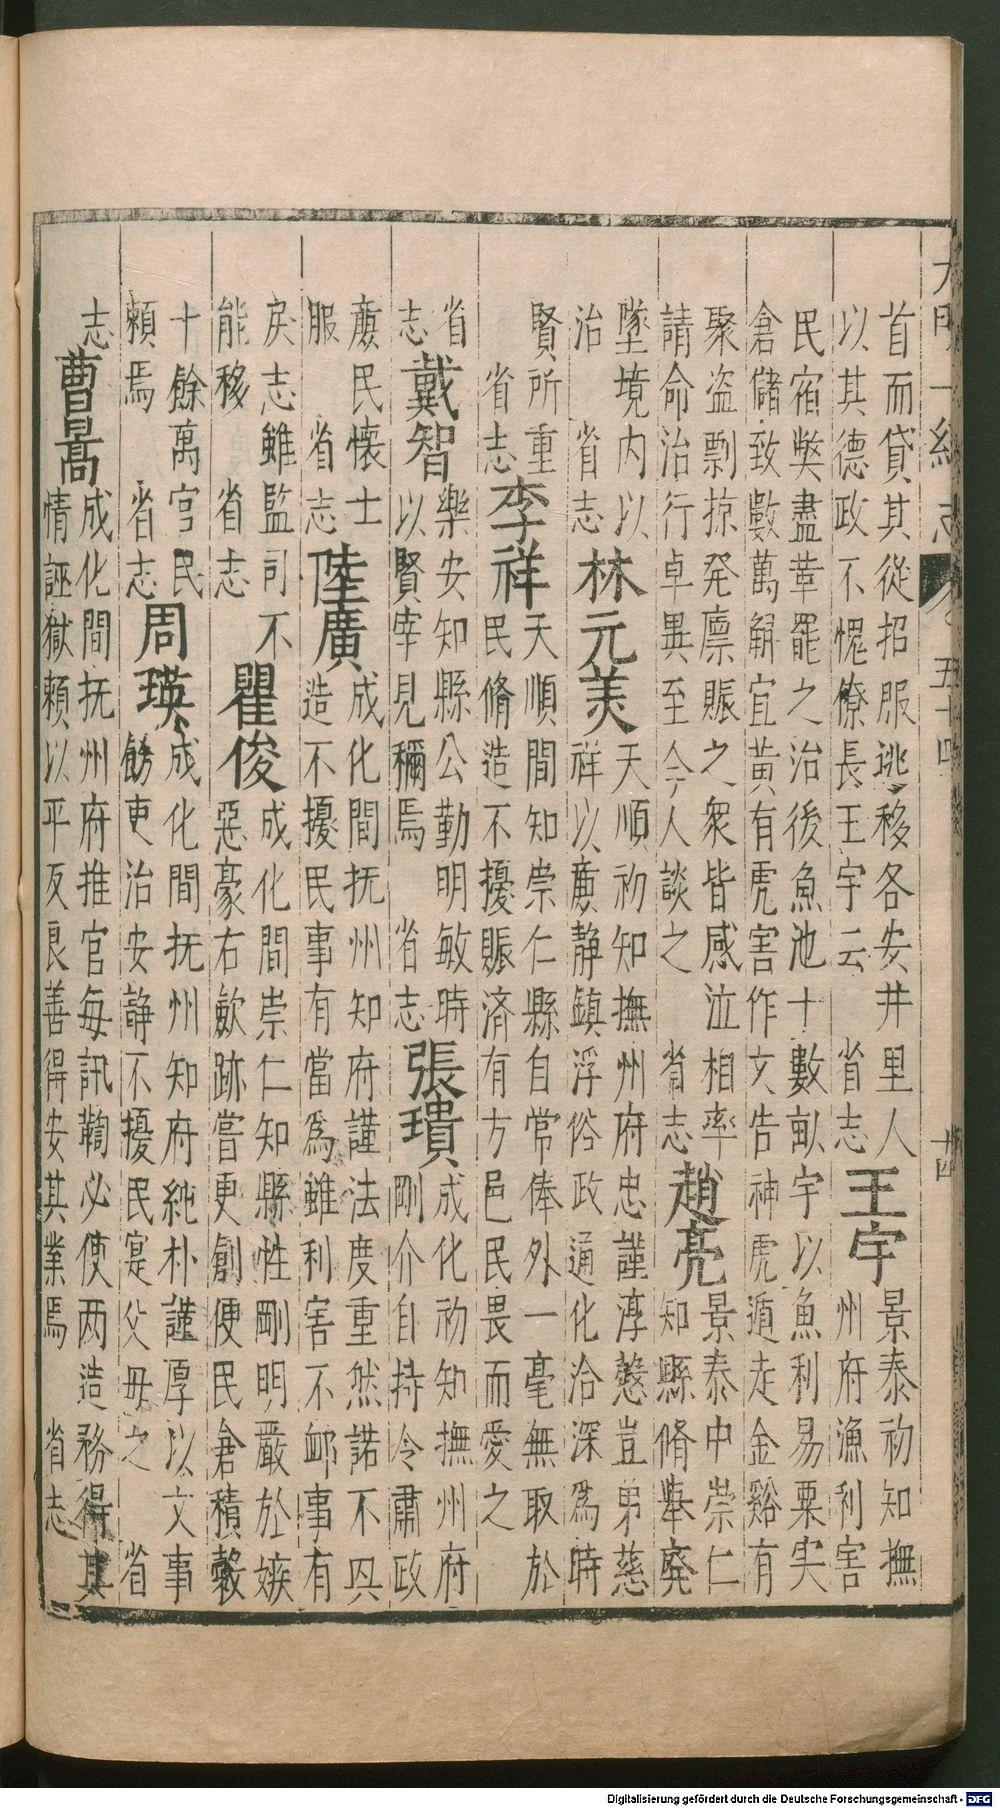 大明一統志 卷五十四 十四
首而貸其從招服逃移各安井里人
以其德政不愧僚長王宇云 省志
王宇
景泰初知撫
州府漁利害
民宿弊盡革罷之治後魚池十數畝宇以魚利易粟实
倉儲致數萬斛宜黃有虎害作文告神虎遁走金谿有
聚盜剽掠発廪賑之衆皆感泣相率
請命治行卓異至今人談之 省志
趙亮
景泰中崇仁
知縣脩舉廃
墜境内以
治 省志
林元美
天順初知撫州府忠謹淳慤豈弟慈
祥以廉静鎮浮俗政通化洽深爲時
賢所重
省志
李祥
天順間知崇仁縣自常俸外一毫無取於
民脩造不擾賑済有方邑民畏而愛之
省
志
戴智
樂安知縣公勤明敏時
以賢宰見稱焉 省志
張璝
成化初知撫州府
剛介自持令肅政
廉民懐士
服 省志
陸廣
成化間抚州知府謹法度重然諾不
造不擾民事有當爲雖利害不䘏事有
戾志雖監司不
能移 省志
瞿俊
成化間崇仁知縣性剛明嚴於嫉
惡豪右歛跡嘗更創便民倉積穀
十餘萬官民
頼焉 省志
周瑛
成化間抚州知府純朴謹厚以文事
餙吏治安諍不擾民寔父母之 省
志
曹暠
成化間抚州府推官每訊鞫必使两造務得其
情誣獄頼以平反良善得安其業焉 省志
Digitalisierung gefördert durch die Deutsche Forschungsgemeinschaft - DFG